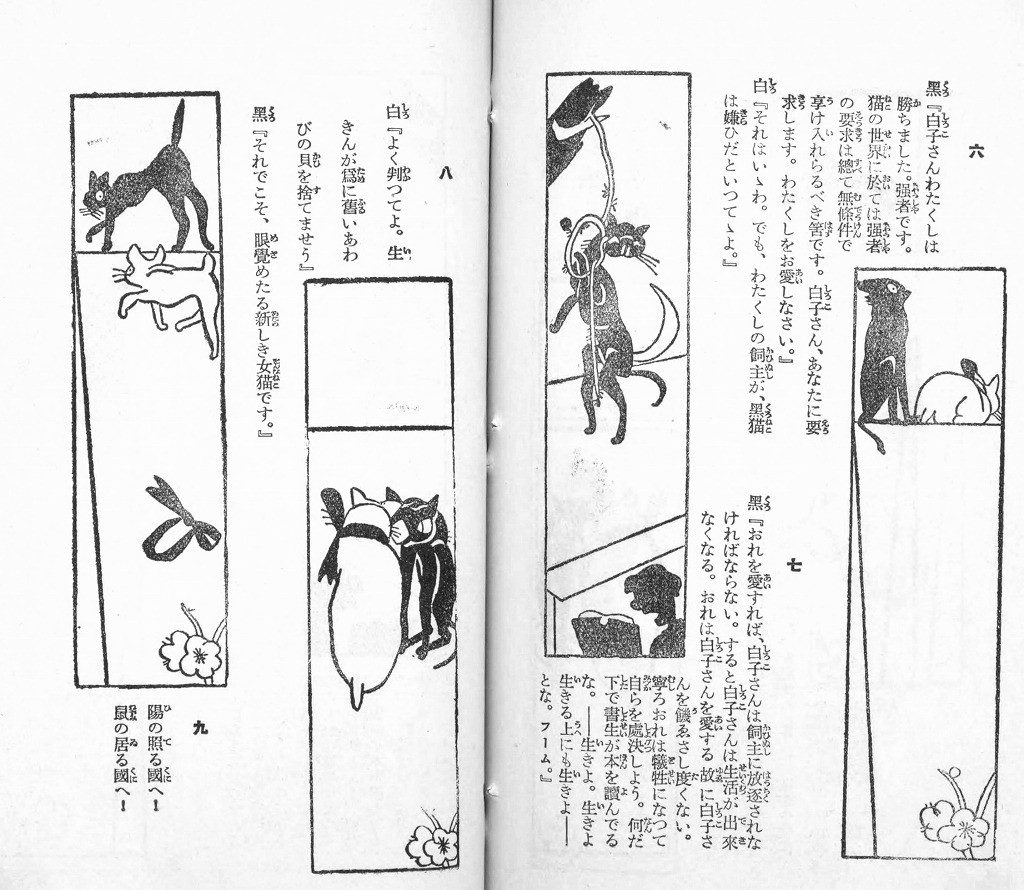 六
黑『白子さんわたくしは
勝ちました。强者です。
猫の世界に於ては强者
の要求は總て無條件で
享け入れらるべき筈です。白子さん、あなたに要
求します。わたくしをお愛しなさい。』
白『それはいゝわ。でも、わたくしの飼主が、黑猫
は嫌ひだといつてゝよ。』
七
黑『おれを愛すれば、白子さんは飼主に放逐されな
ければならない。すると白子さんは生活が出來
なくなる。おれは白子さんを愛する故に白子さ
んを饑ゑさし度くない。
寧ろおれは犧牲になつて
自らを處決しよう。何だ
下で書生が本を讀んでる
な。――生きよ。生きよ
生きる上にも生きよ――
とな。フーム。』
八
白『よく判つてよ。生
きんが爲に舊いあわ
びの貝を捨てませう』
黑『それでこそ、眼覺めたる新しき女猫です。』
九
陽の照る國へ！
鼠の居る國へ！